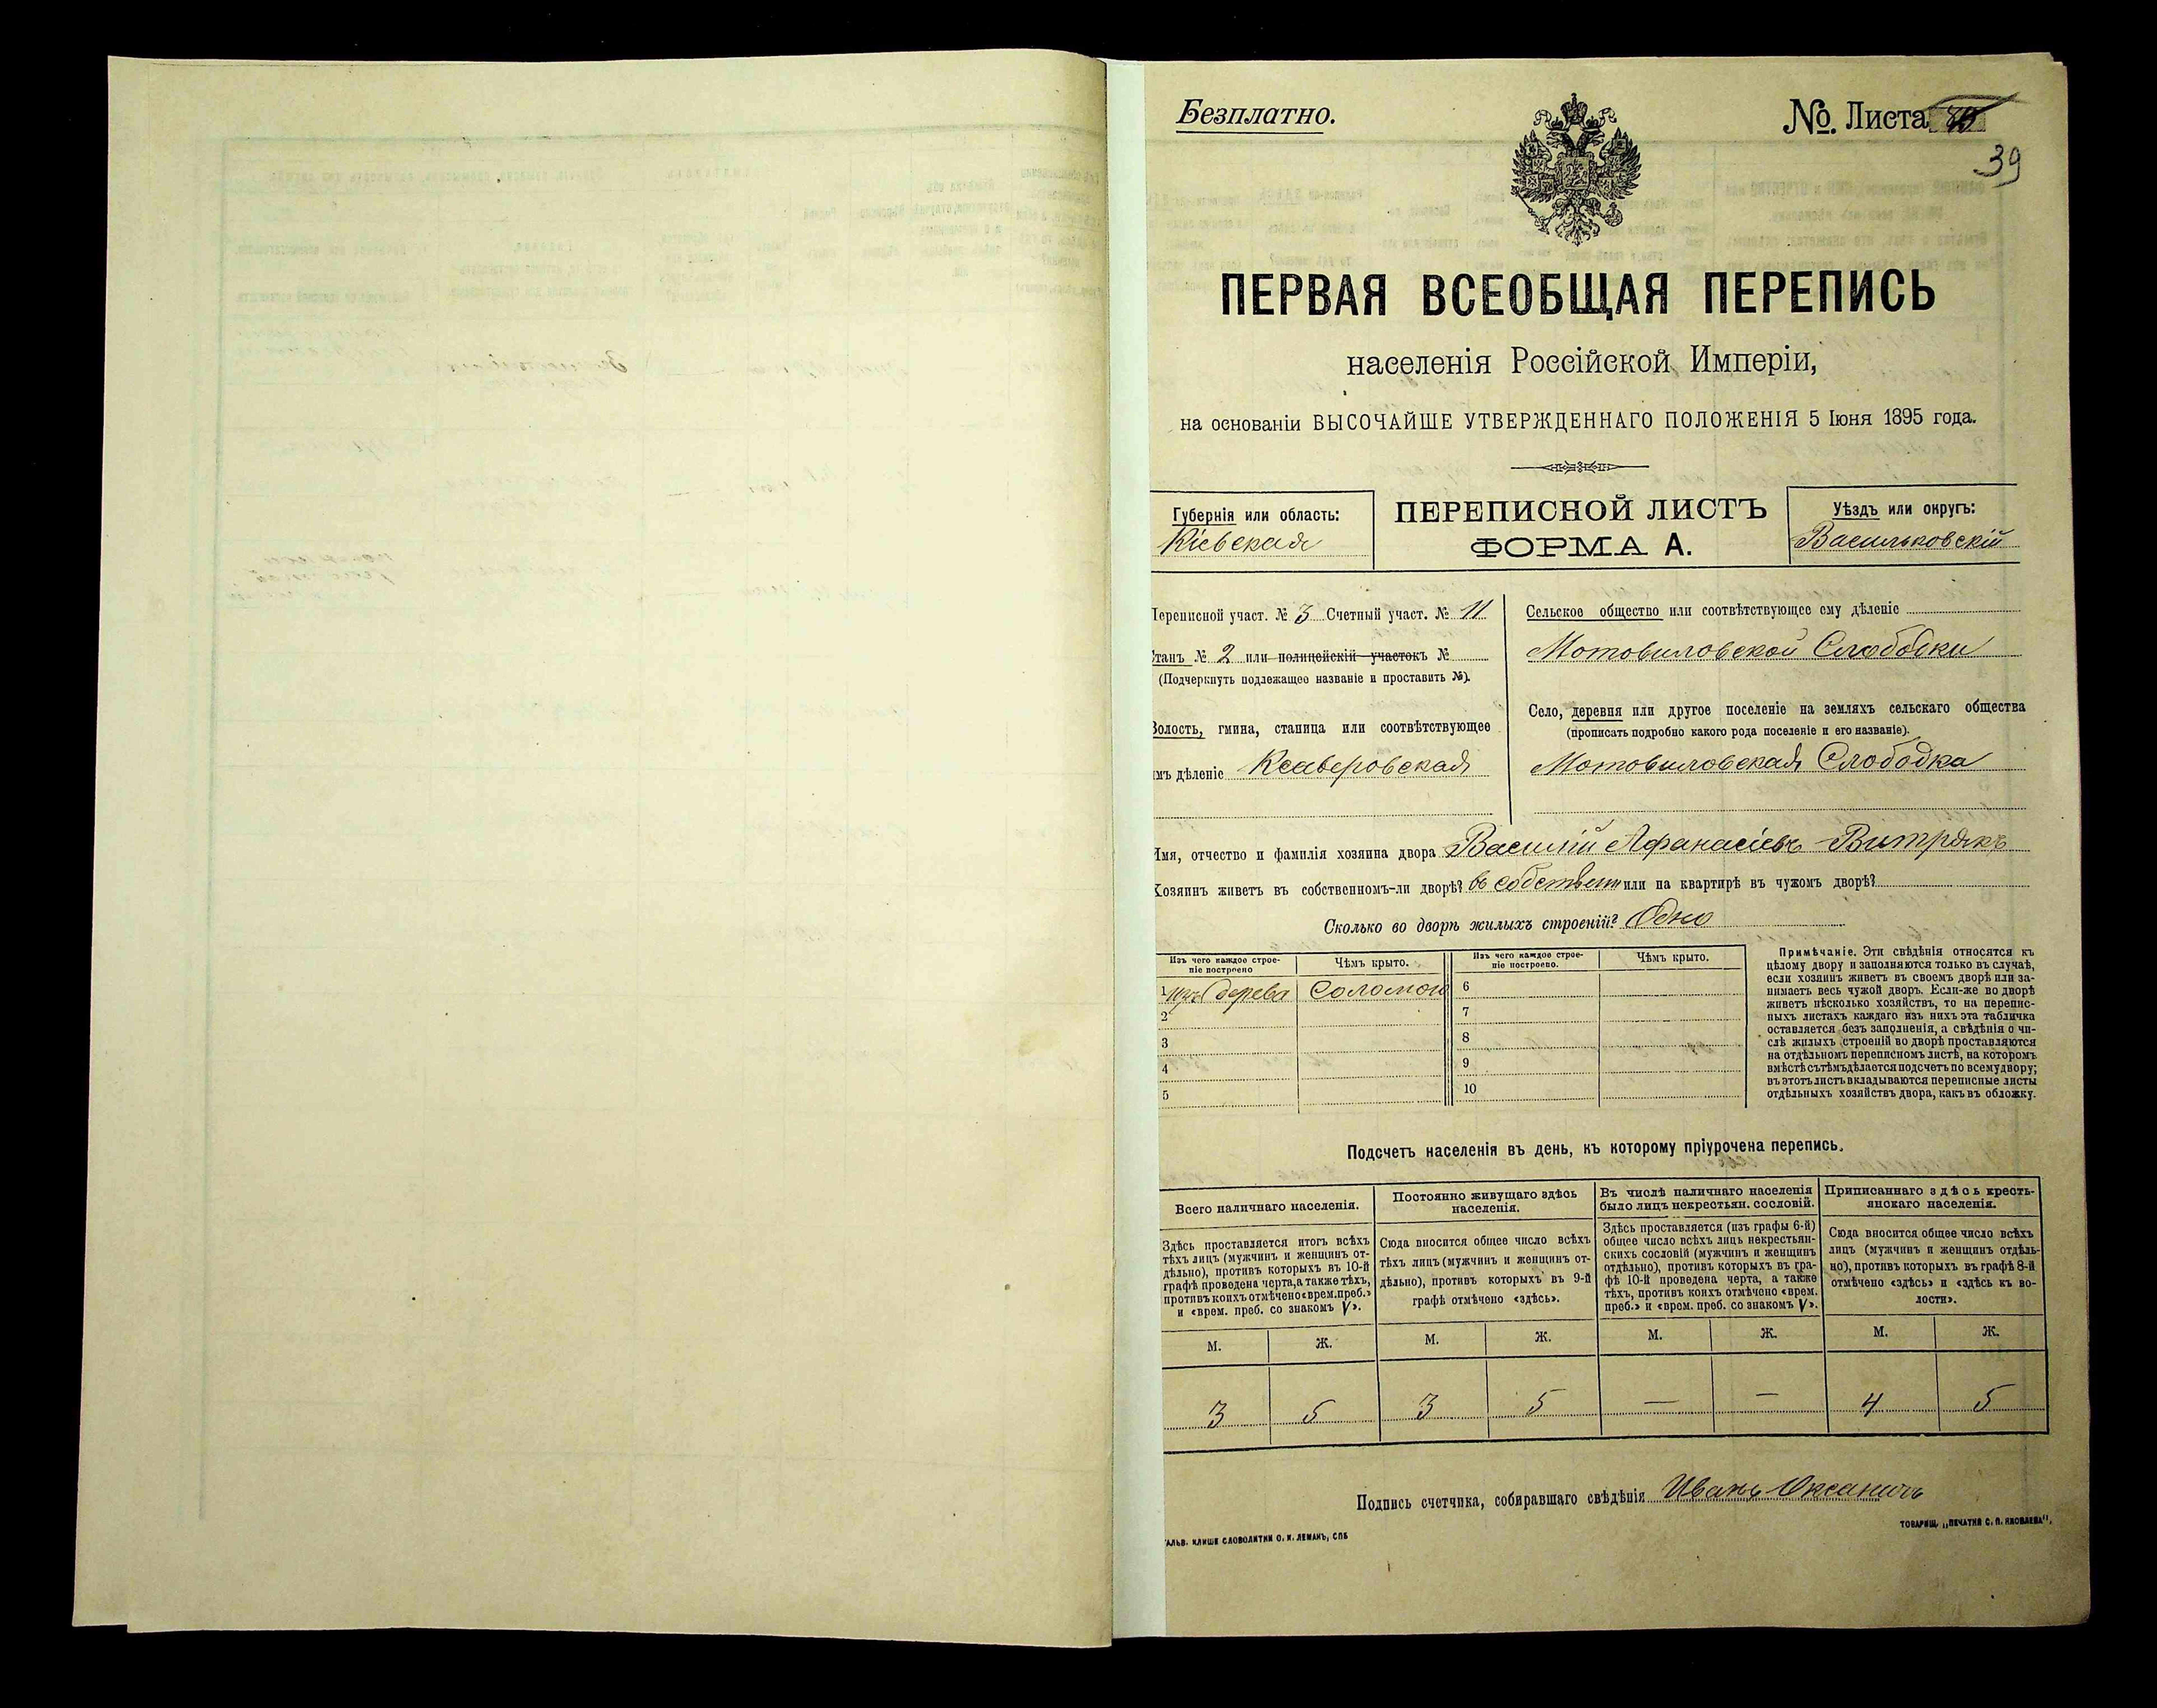 Безплатно.
№. Листа
39
ПЕРВАЯ ВСЕОБЩАЯ ПЕРЕПИСЬ
населенія Россійской Имперіи,
на основаніи ВЫСОЧАЙШЕ УТВЕРЖДЕННАГО ПОЛОЖЕНІЯ 5 Іюня 1895 года.
Губернія или область:
Кіевская
ПЕРЕПИСНОЙ ЛИСТЪ
ФОРМА А.
Уѣздъ или округъ:
Васильковскій
Переписной участ. № 3 Счетный участ. № 11
Станъ № 2 или полицейскій участокъ №
(Подчеркнуть подлежащее названіе и проставить №).
Волость, гмина, станица или соотвѣтствующее
имъ дѣленіе Ксаверовская
Сельское общество или соотвѣтствующее ему дѣленіе
Мотовиловской Слободки
Село, деревня или другое поселеніе на земляхъ сельскаго общества
(прописать подробно какого рода поселеніе и его названіе).
Мотовиловская Слободка
Имя, отчество и фамилія хозяина двора Василій Афанасіевъ Витрякъ
Хозяинъ живетъ въ собственномъ-ли дворѣ? въ собствен или на квартирѣ въ чужомъ дворѣ?
Сколько во дворѣ жилыхъ строеній? Одно
Изъ чего каждое строе-
ніе построено
Чѣмъ крыто.
Изъ чего каждое строе-
ніе построено.
Чѣмъ крыто.
1 изъ дерева Соломой 6
2 7
3 8
4 9
5 10
Примѣчаніе. Эти свѣдѣнія относятся къ
цѣлому двору и заполняются только въ случаѣ,
если хозяинъ живетъ въ своемъ дворѣ или за-
нимаетъ весь чужой дворъ. Если-же во дворѣ
живетъ нѣсколько хозяйствъ, то на перепис-
ныхъ листахъ каждаго изъ нихъ эта табличка
оставляется безъ заполненія, а свѣдѣнія о чи-
слѣ жилыхъ строеній во дворѣ проставляются
на отдѣльномъ переписномъ листѣ, на которомъ
вмѣстѣ съ тѣмъ дѣлается подсчетъ по всему двору;
въ этотъ листъ вкладываются переписные листы
отдѣльныхъ хозяйствъ двора, какъ въ обложку.
Подсчетъ населенія въ день, къ которому пріурочена перепись.
Всего наличнаго населенія.
Здѣсь проставляется итогъ всѣхъ
тѣхъ лицъ (мужчинъ и женщинъ от-
дѣльно), противъ которыхъ въ 10-й
графѣ проведена черта, а также тѣхъ,
противъ коихъ отмѣчено «врем. преб.»
и «врем. преб. со знакомъ V».
Постоянно живущаго здѣсь
населенія.
Сюда вносится общее число всѣхъ
тѣхъ лицъ (мужчинъ и женщинъ от-
дѣльно), противъ которыхъ въ 9-й
графѣ отмѣчено «здѣсь».
Въ числѣ наличнаго населенія
было лицъ некрестьян. сословій.
Здѣсь проставляется (изъ графы 6-й)
общее число всѣхъ лицъ некрестьян-
скихъ сословій (мужчинъ и женщинъ
отдѣльно), противъ которыхъ въ гра-
фѣ 10-й проведена черта, а также
тѣхъ, противъ коихъ отмѣчено «врем.
преб.» и «врем. преб. со знакомъ V».
Приписаннаго здѣсь кресть-
янскаго населенія.
Сюда вносится общее число всѣхъ
лицъ (мужчинъ и женщинъ отдѣль-
но), противъ которыхъ въ графѣ 8-й
отмѣчено «здѣсь» и «здѣсь къ во-
лости».
М. Ж. М. Ж. М. Ж. М. Ж.
3 5 3 5 — — 4 5
Подпись счетчика, собиравшаго свѣдѣнія Иванъ Оксаничъ
ГАЛЬВ. КЛИШЕ СЛОВОЛИТНИ О. И. ЛЕМАНЪ, СПБ
ТОВАРИЩ. „ПЕЧАТНЯ С. П. ЯКОВЛЕВА".